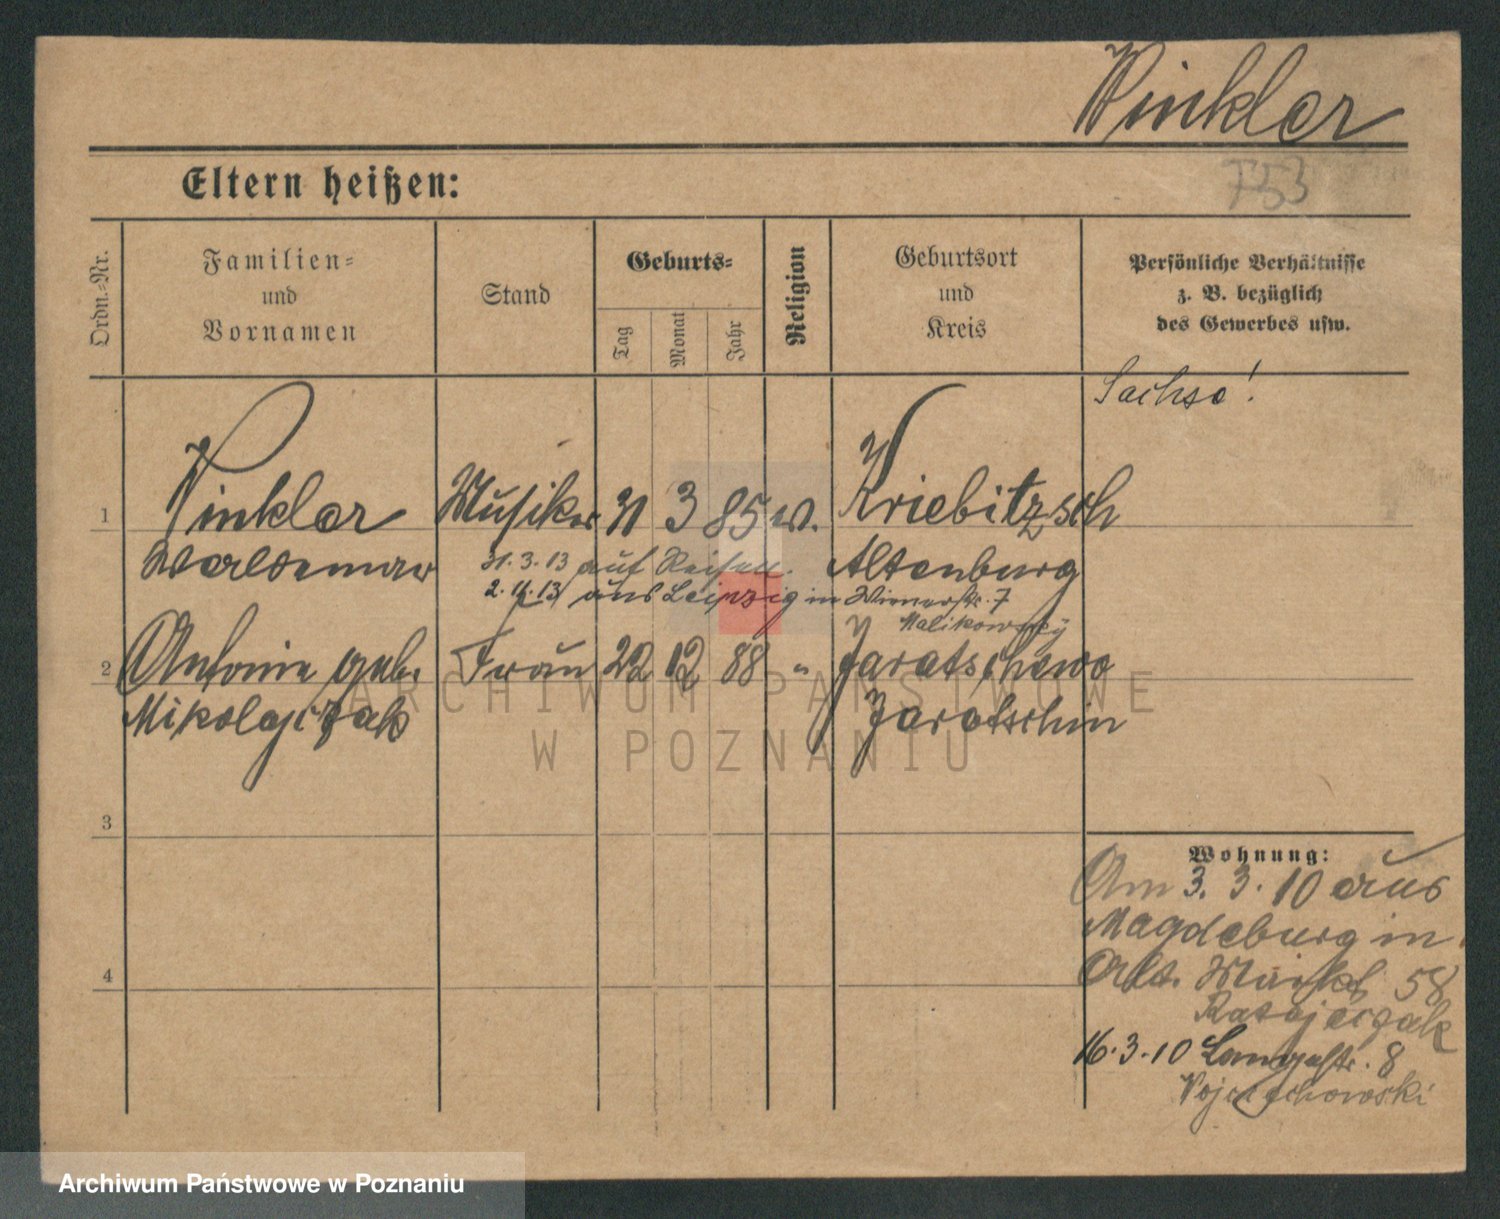 Winkler
Eltern heißen:
T53
Ordn.-Nr.
Familien-
und
Vornamen
Stand
Geburts-
Tag
Monat
Jahr
Religion
Geburtsort
und
Kreis
Persönliche Verhältnisse
z. B. bezüglich
des Gewerbes usw.
Sachse!
1 Winkler Musiker 31 3 85 ev. Kriebitzsch
Waldemar Altenburg
31.3.13 auf Reisen.
2.4.13 aus Leipzig in Wienerstr. 7
Malikowsky
2 Antonie geb. Frau 22 12 88 " Jaratschewo
Mikolajczak Jarotschin
3
4
Wohnung:
Am 3. 3. 10 aus
Magdeburg in
Alt. Markt 58
Ratajczak
16.3.10 Langestr. 8
Wojciechowski
ARCHIWUM PAŃSTWOWE
W POZNANIU
Archiwum Państwowe w Poznaniu